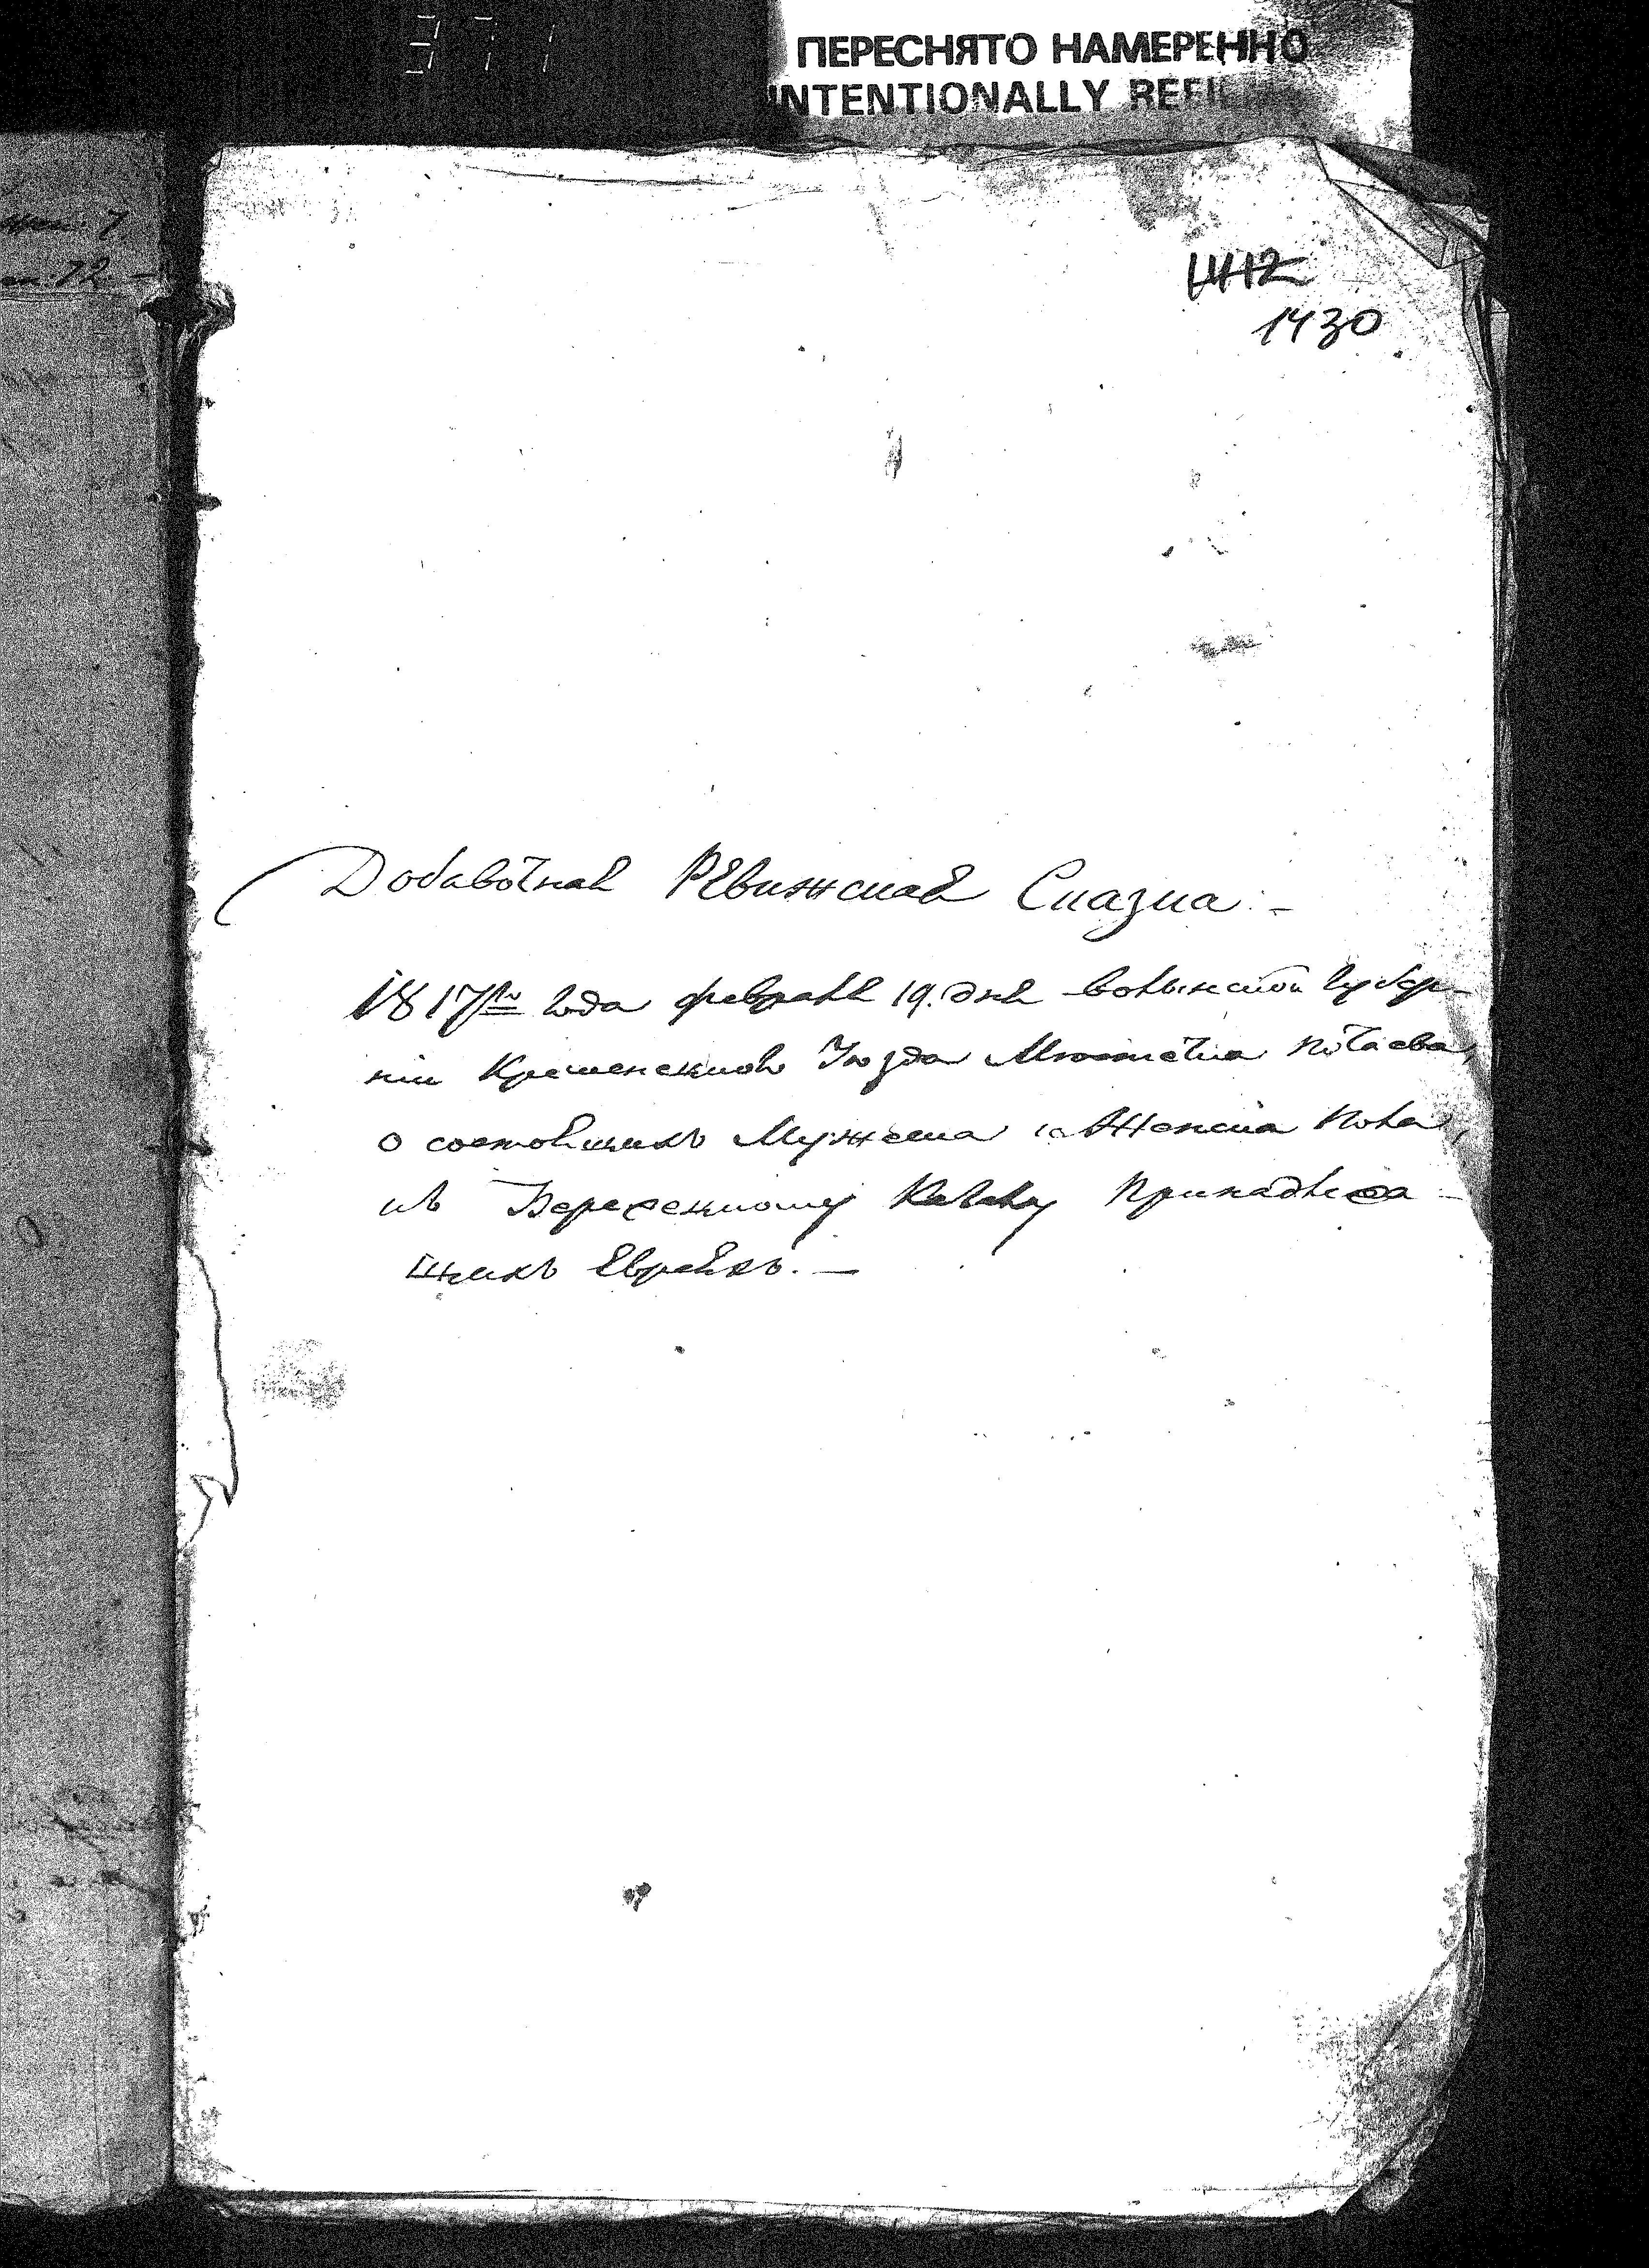 371
ПЕРЕСНЯТО НАМЕРЕННО
INTENTIONALLY REFIL
1412
1430
7
72 —
Добавочная Ревижская Сказка: –
1817го года февраля 19. дня волынской Губер-
нии Кременекцкого Уюзда Мюстечка почаева,
о состоящихъ Мужеска и Женска пола,
къ Берехецкому Кагалу принадлежа-
щихъ Евреяхъ. —